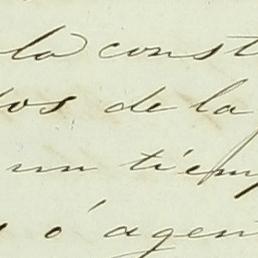 la const
os de la
un tiemp
ó agen